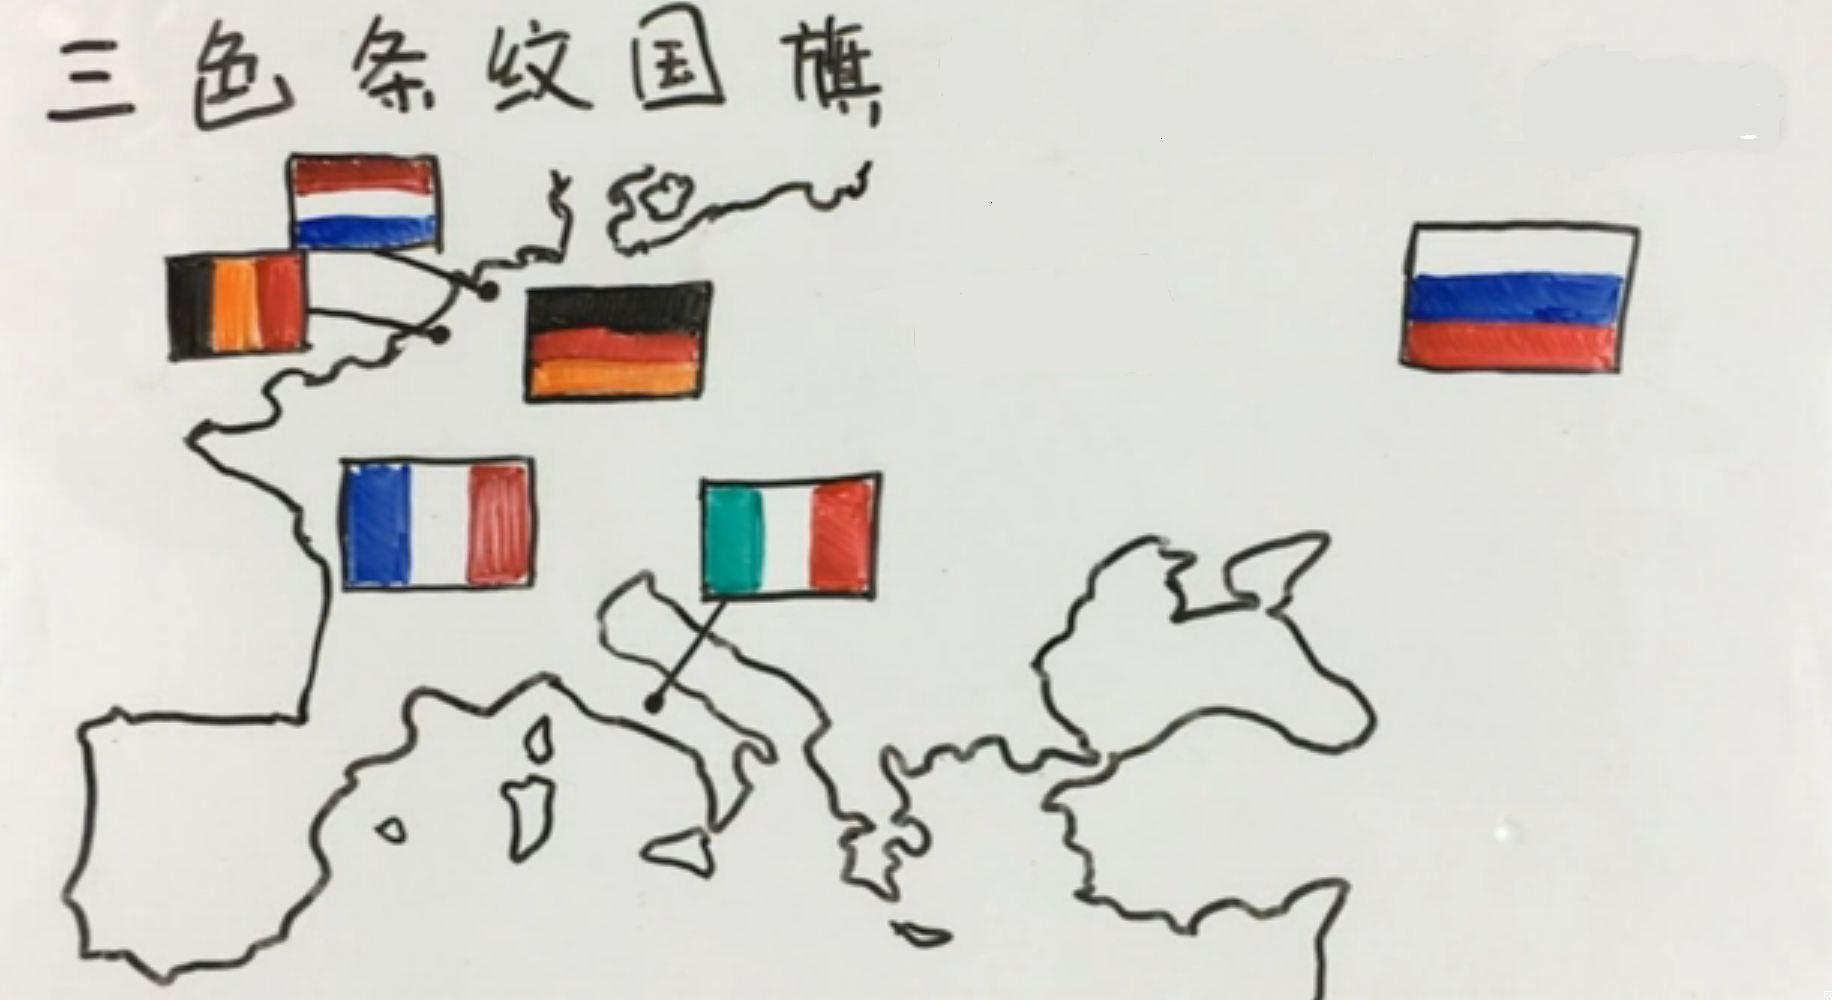 三色条纹国旗